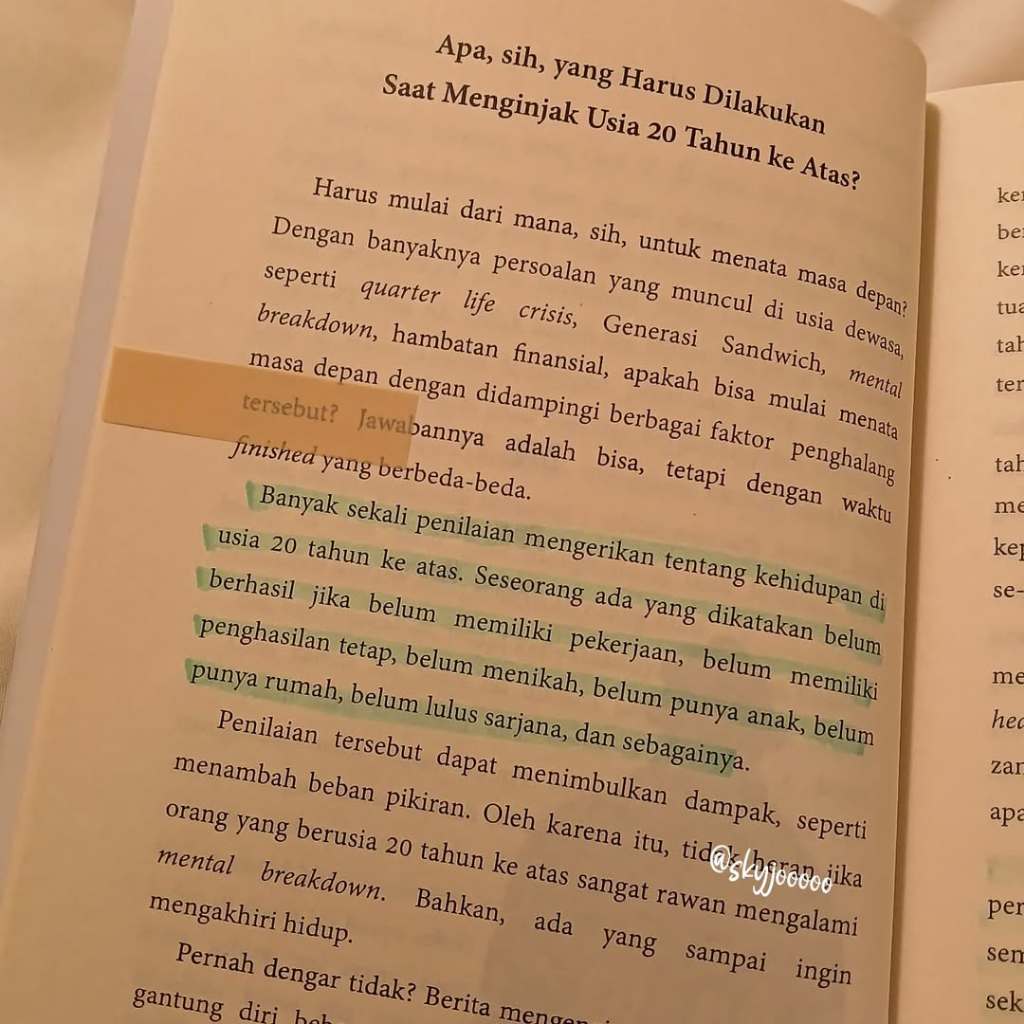 Apa, sih, yang Harus Dilakukan
Saat Menginjak Usia 20 Tahun ke Atas?
Harus mulai dari mana, sih, untuk menata masa depan?
Dengan banyaknya persoalan yang muncul di usia dewasa,
seperti quarter life crisis, Generasi Sandwich, mental
breakdown, hambatan finansial, apakah bisa mulai menata
masa depan dengan didampingi berbagai faktor penghalang
tersebut? Jawabannya adalah bisa, tetapi dengan waktu
finished yang berbeda-beda.
Banyak sekali penilaian mengerikan tentang kehidupan di
usia 20 tahun ke atas. Seseorang ada yang dikatakan belum
berhasil jika belum memiliki pekerjaan, belum memiliki
penghasilan tetap, belum menikah, belum punya anak, belum
punya rumah, belum lulus sarjana, dan sebagainya.
Penilaian tersebut dapat menimbulkan dampak, seperti
menambah beban pikiran. Oleh karena itu, tidak heran jika
orang yang berusia 20 tahun ke atas sangat rawan mengalami
mental breakdown. Bahkan, ada yang sampai ingin
mengakhiri hidup.
Pernah dengar tidak? Berita
gantung diri
@skyjjooooo